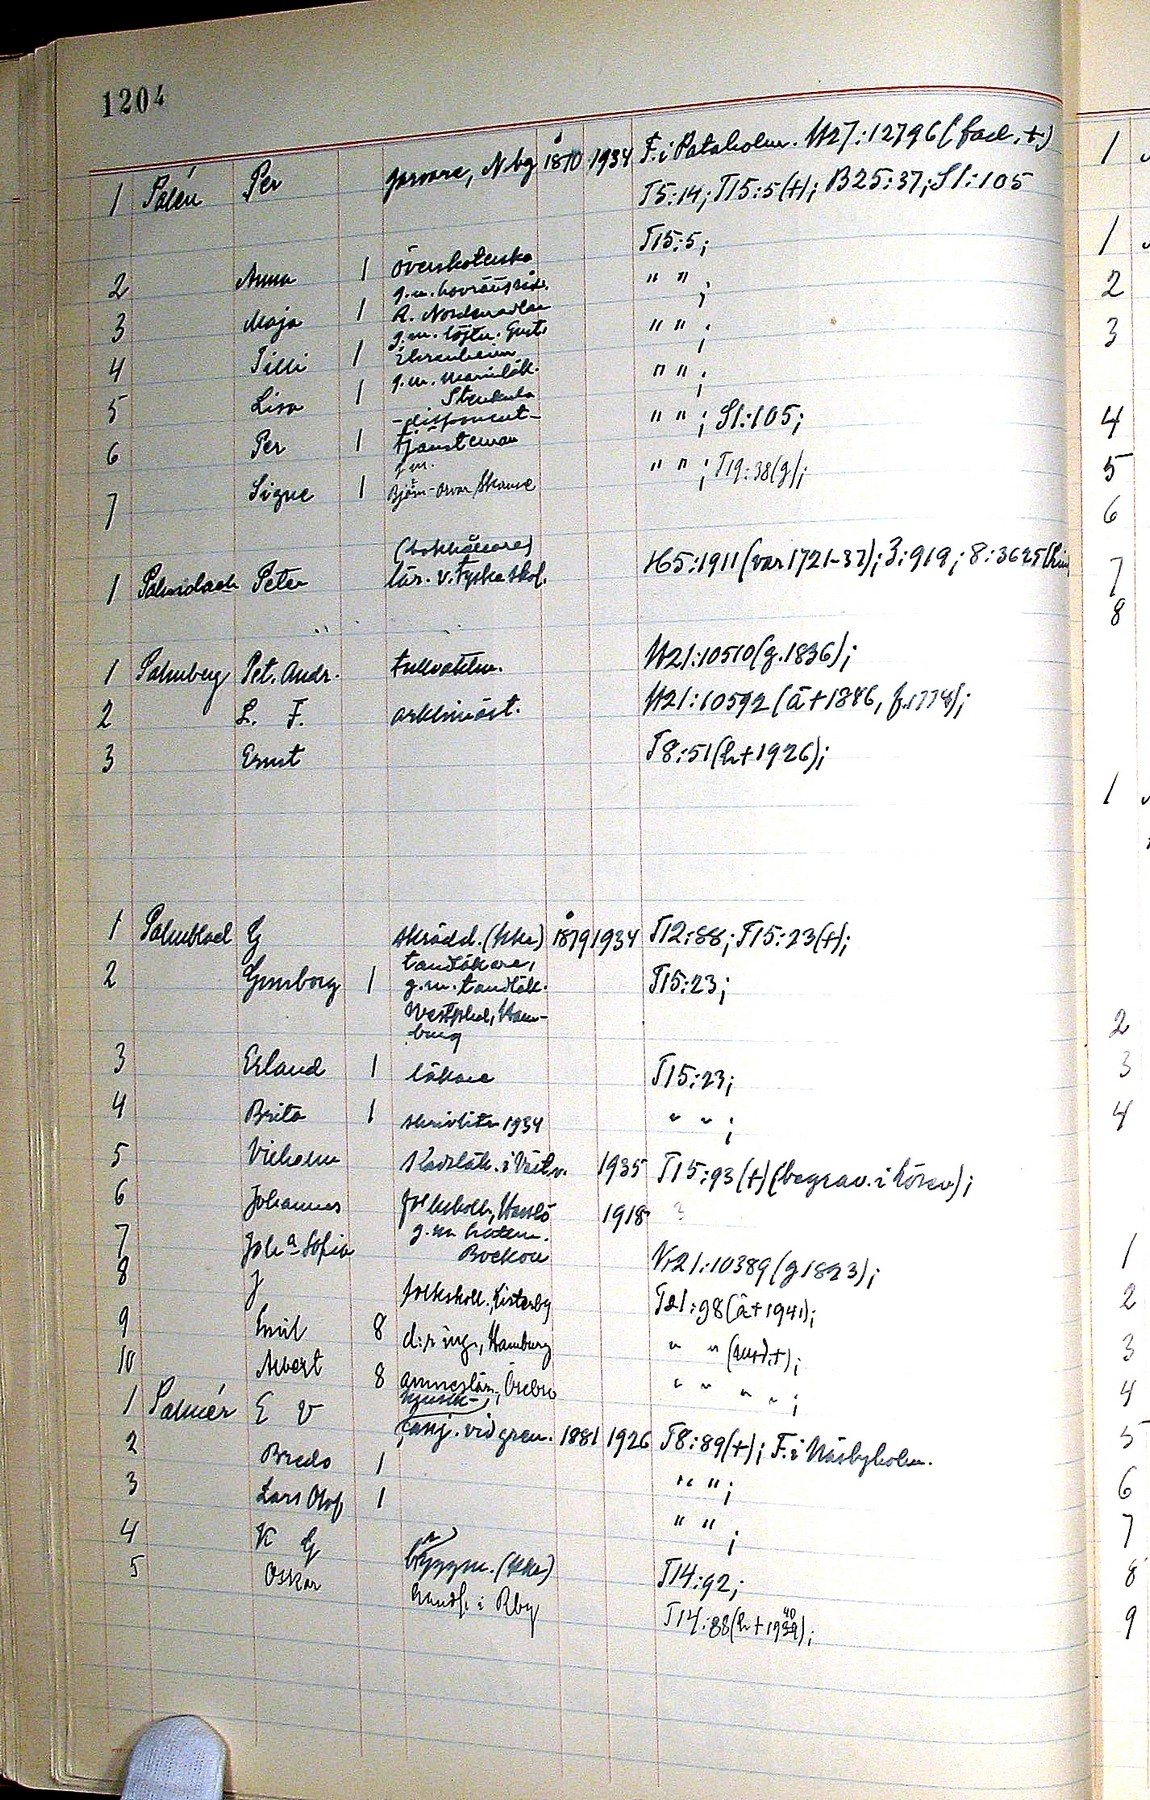 1204
1 Palén Per garvare, N-by å 1870 1934 F. i Pataholm. H27:12796 (fad. +)
T5:14; T15:5(+); B25:37; Sl:105
T15:5;
2 Anna 1 översköterska " " ;
3 Maja 1 g.m. hovrättsråd. R. " " ;
4 Tilli 1 g.m. löjtn. Gust. " " ;
5 Lisa 1 g.m. marinläk. Stenkula " " ; Sl:105;
6 Per 1 -disponent- tjänsteman " " ; T19:38(g);
7 Signe 1 g.m. Björn-Orvar
(bokhållare)
1 Peter lär. v. tyska skol. H5:1911 (var 1721-37); 3:919; 8:3625
1 Palmberg Pet. Andr. tullvaktm. H21:10510 (g. 1836);
2 L. F. arklimäst. H21:10592 (ä + 1846, f. 1778);
3 Ernst T8:51 (h + 1926);
1 Palmblad G skrädd. (Kka) å 1879 1934 T12:88; T15:23(+);
2 Gunborg 1 tandläkare, T15:23;
g.m. tandläk.
Westphal, Ham-
burg
3 Erland 1 läkare T15:23;
4 Brita 1 1934 " " ;
5 Vilhelm Rådsläk. i Västerv. 1935 T15:93(+) (begrav. i
6 Johannes folkskoll., Hasslö 1918
7 Joh:a Sofia g.m. V21:10389 (g 1823);
8 J folkskoll., Listerby T21:98 (ä + 1941);
9 Emil 8 d:r ing., Hamburg " " ;
10 Albert 8 ämneslär., Örebro " " " " ;
1 Palmér E V fanj. vid gren. 1881 1926 T8:89(+); F. i Näsbyholm.
2 Bredo 1 " " ;
3 Lars Olof 1 " " ;
4 K G byggm. (Kka) T14:92;
5 Oskar handl. i Rby T14:88 (h + 1940);
1
1
2
3
4
5
6
7
8
1
2
3
4
1
2
3
4
5
6
7
8
9